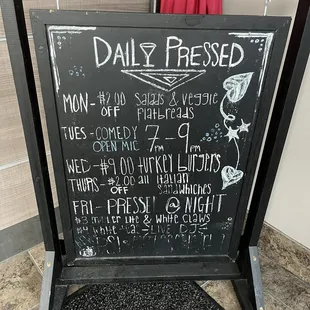 DAILY PRESSED
MON- $2.00 Salads & Veggie
OFF Flatbreads
TUES - COMEDY 7PM - 9PM
OPEN MIC
WED - $9.00 turkey burgers
THURS - $2.00 all Italian
OFF Sandwhiches
FRI - PRESSE! @ NIGHT
$3 miller lite & white Claws
LIVE DJ